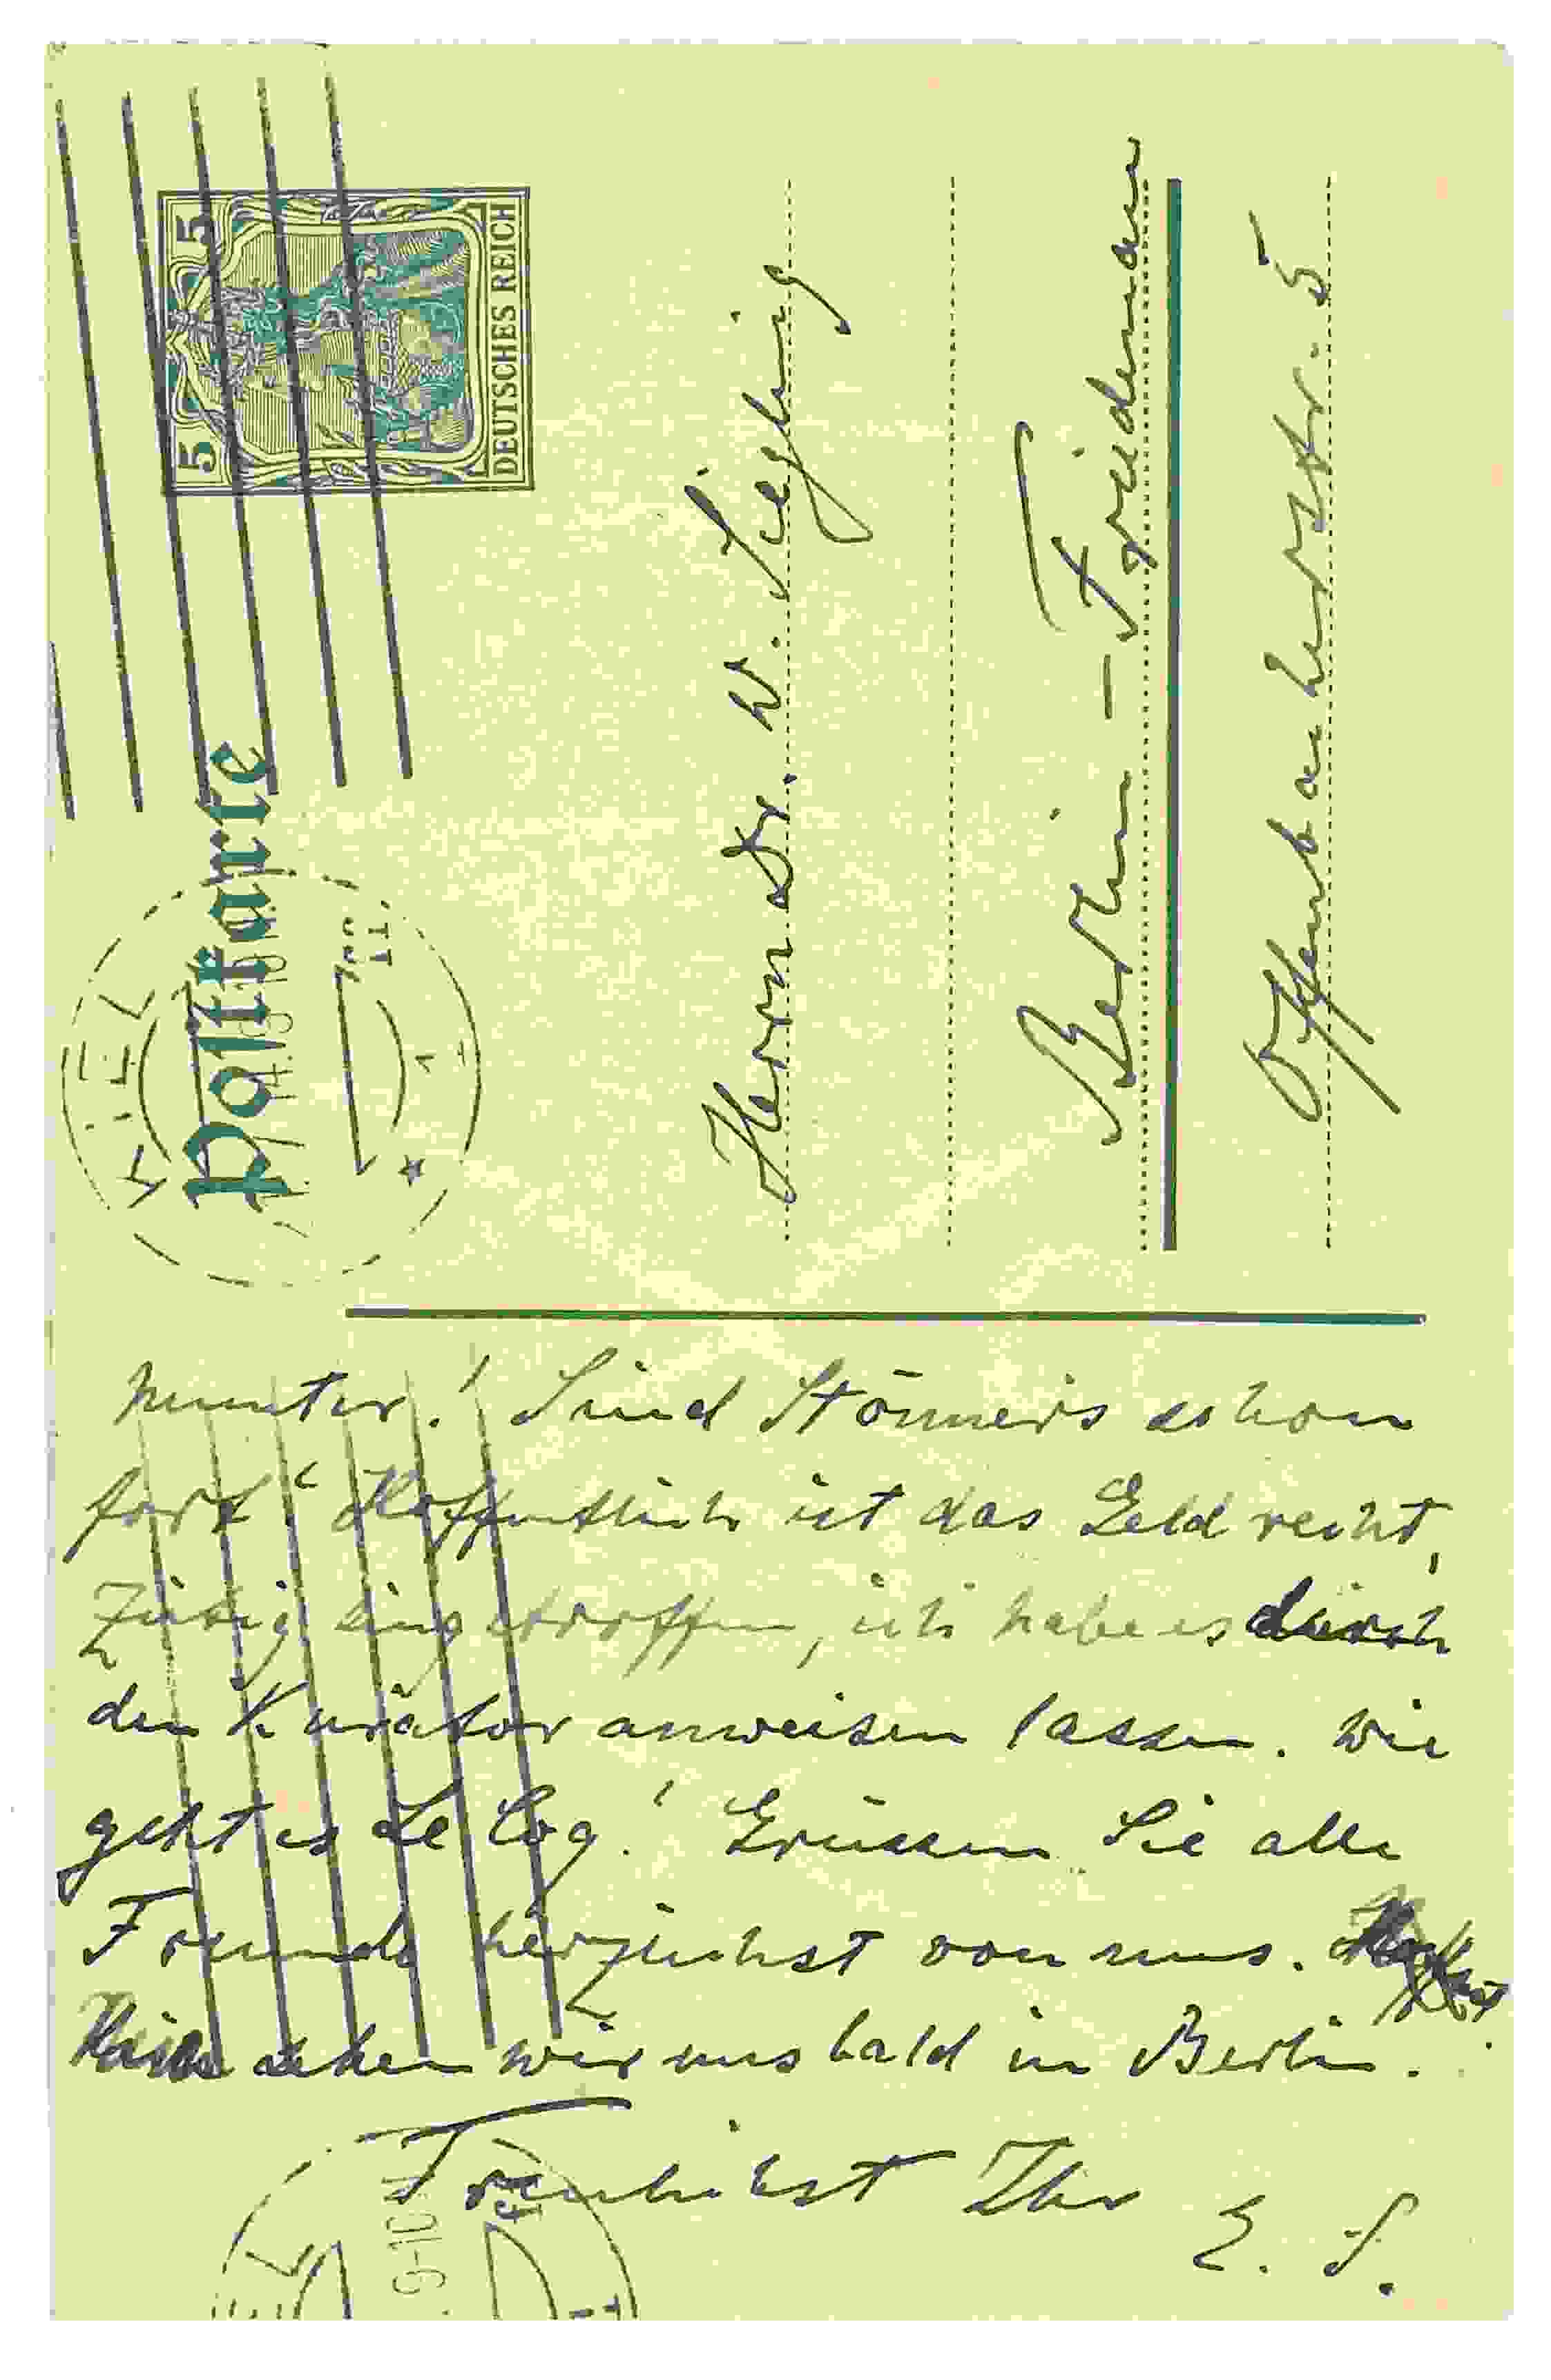 Postkarte
5 5
DEUTSCHES REICH
KIEL
Herrn Dr. W. Siegling
Berlin - Friedenau
Offenbacherstr. 5
munter! Sind Stönners schon
fort? Hoffentlich ist das Geld recht
zeitig eingetroffen, ich habe es durch
den Kurator anweisen lassen. Wie
geht es Le Coq? Grüssen Sie alle
Freunde herzlichst von uns.
sehen wir uns bald in Berlin.
Freundlichst Ihr
E. S.
9-10